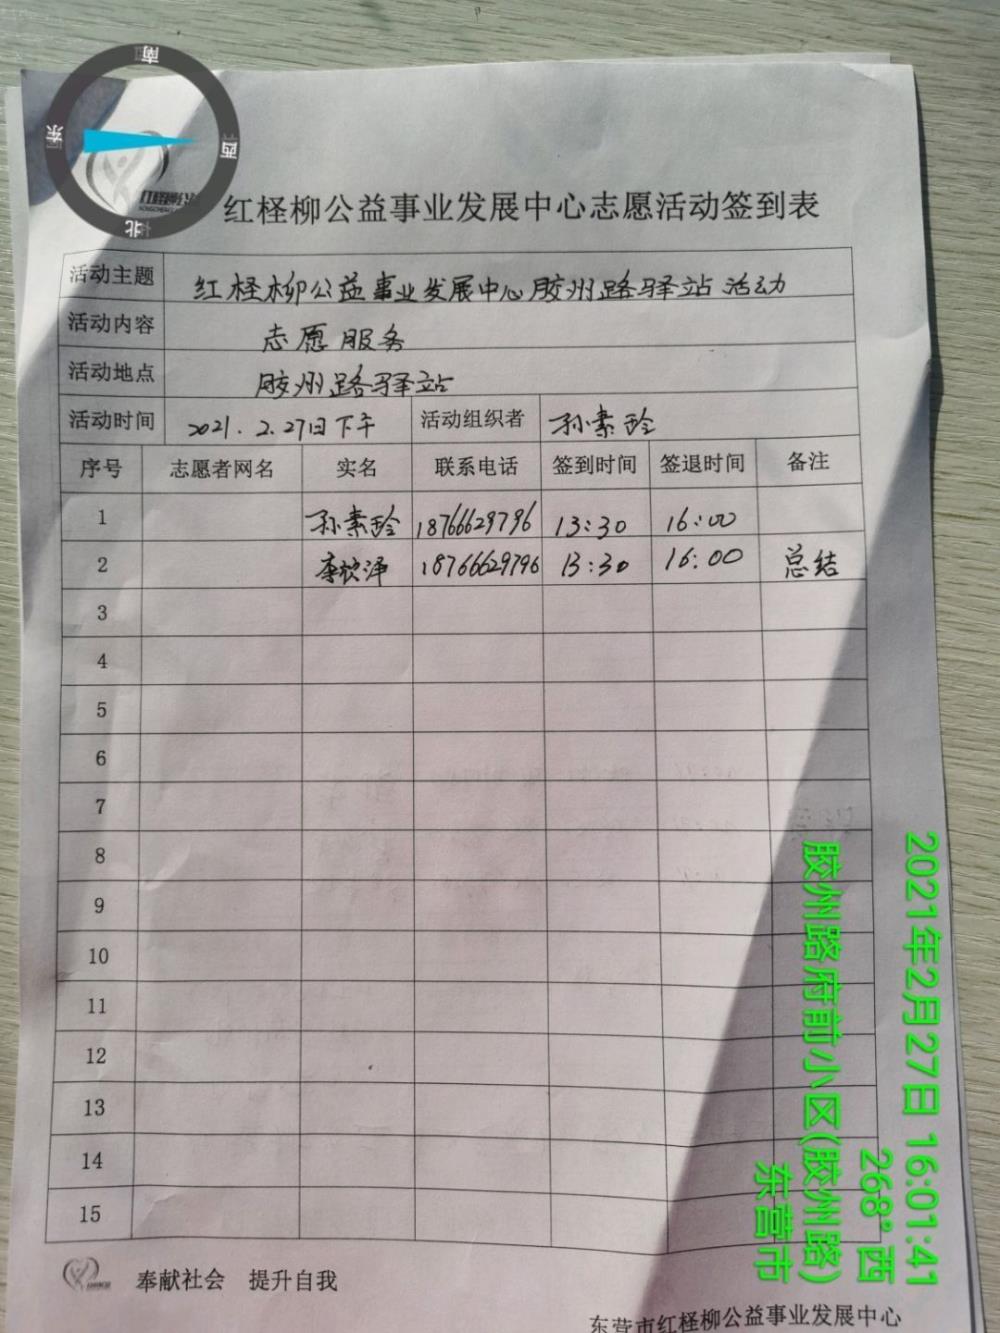 南
东
西
北
红柽柳公益事业发展中心志愿活动签到表
活动主题 红柽柳公益事业发展中心胶州路驿站活动
活动内容 志愿服务
活动地点 胶州路驿站
活动时间 2021.2.27日下午 活动组织者 孙素玲
序号 志愿者网名 实名 联系电话 签到时间 签退时间 备注
1 孙素玲 18766629796 13:30 16:00
2 李钦泽 18766629796 13:30 16:00 总结
3
4
5
6
7
8
9
10
11
12
13
14
15
奉献社会 提升自我
东营市红柽柳公益事业发展中心
2021年2月27日 16:01:41
268° 西
胶州路府前小区(胶州路)
东营市